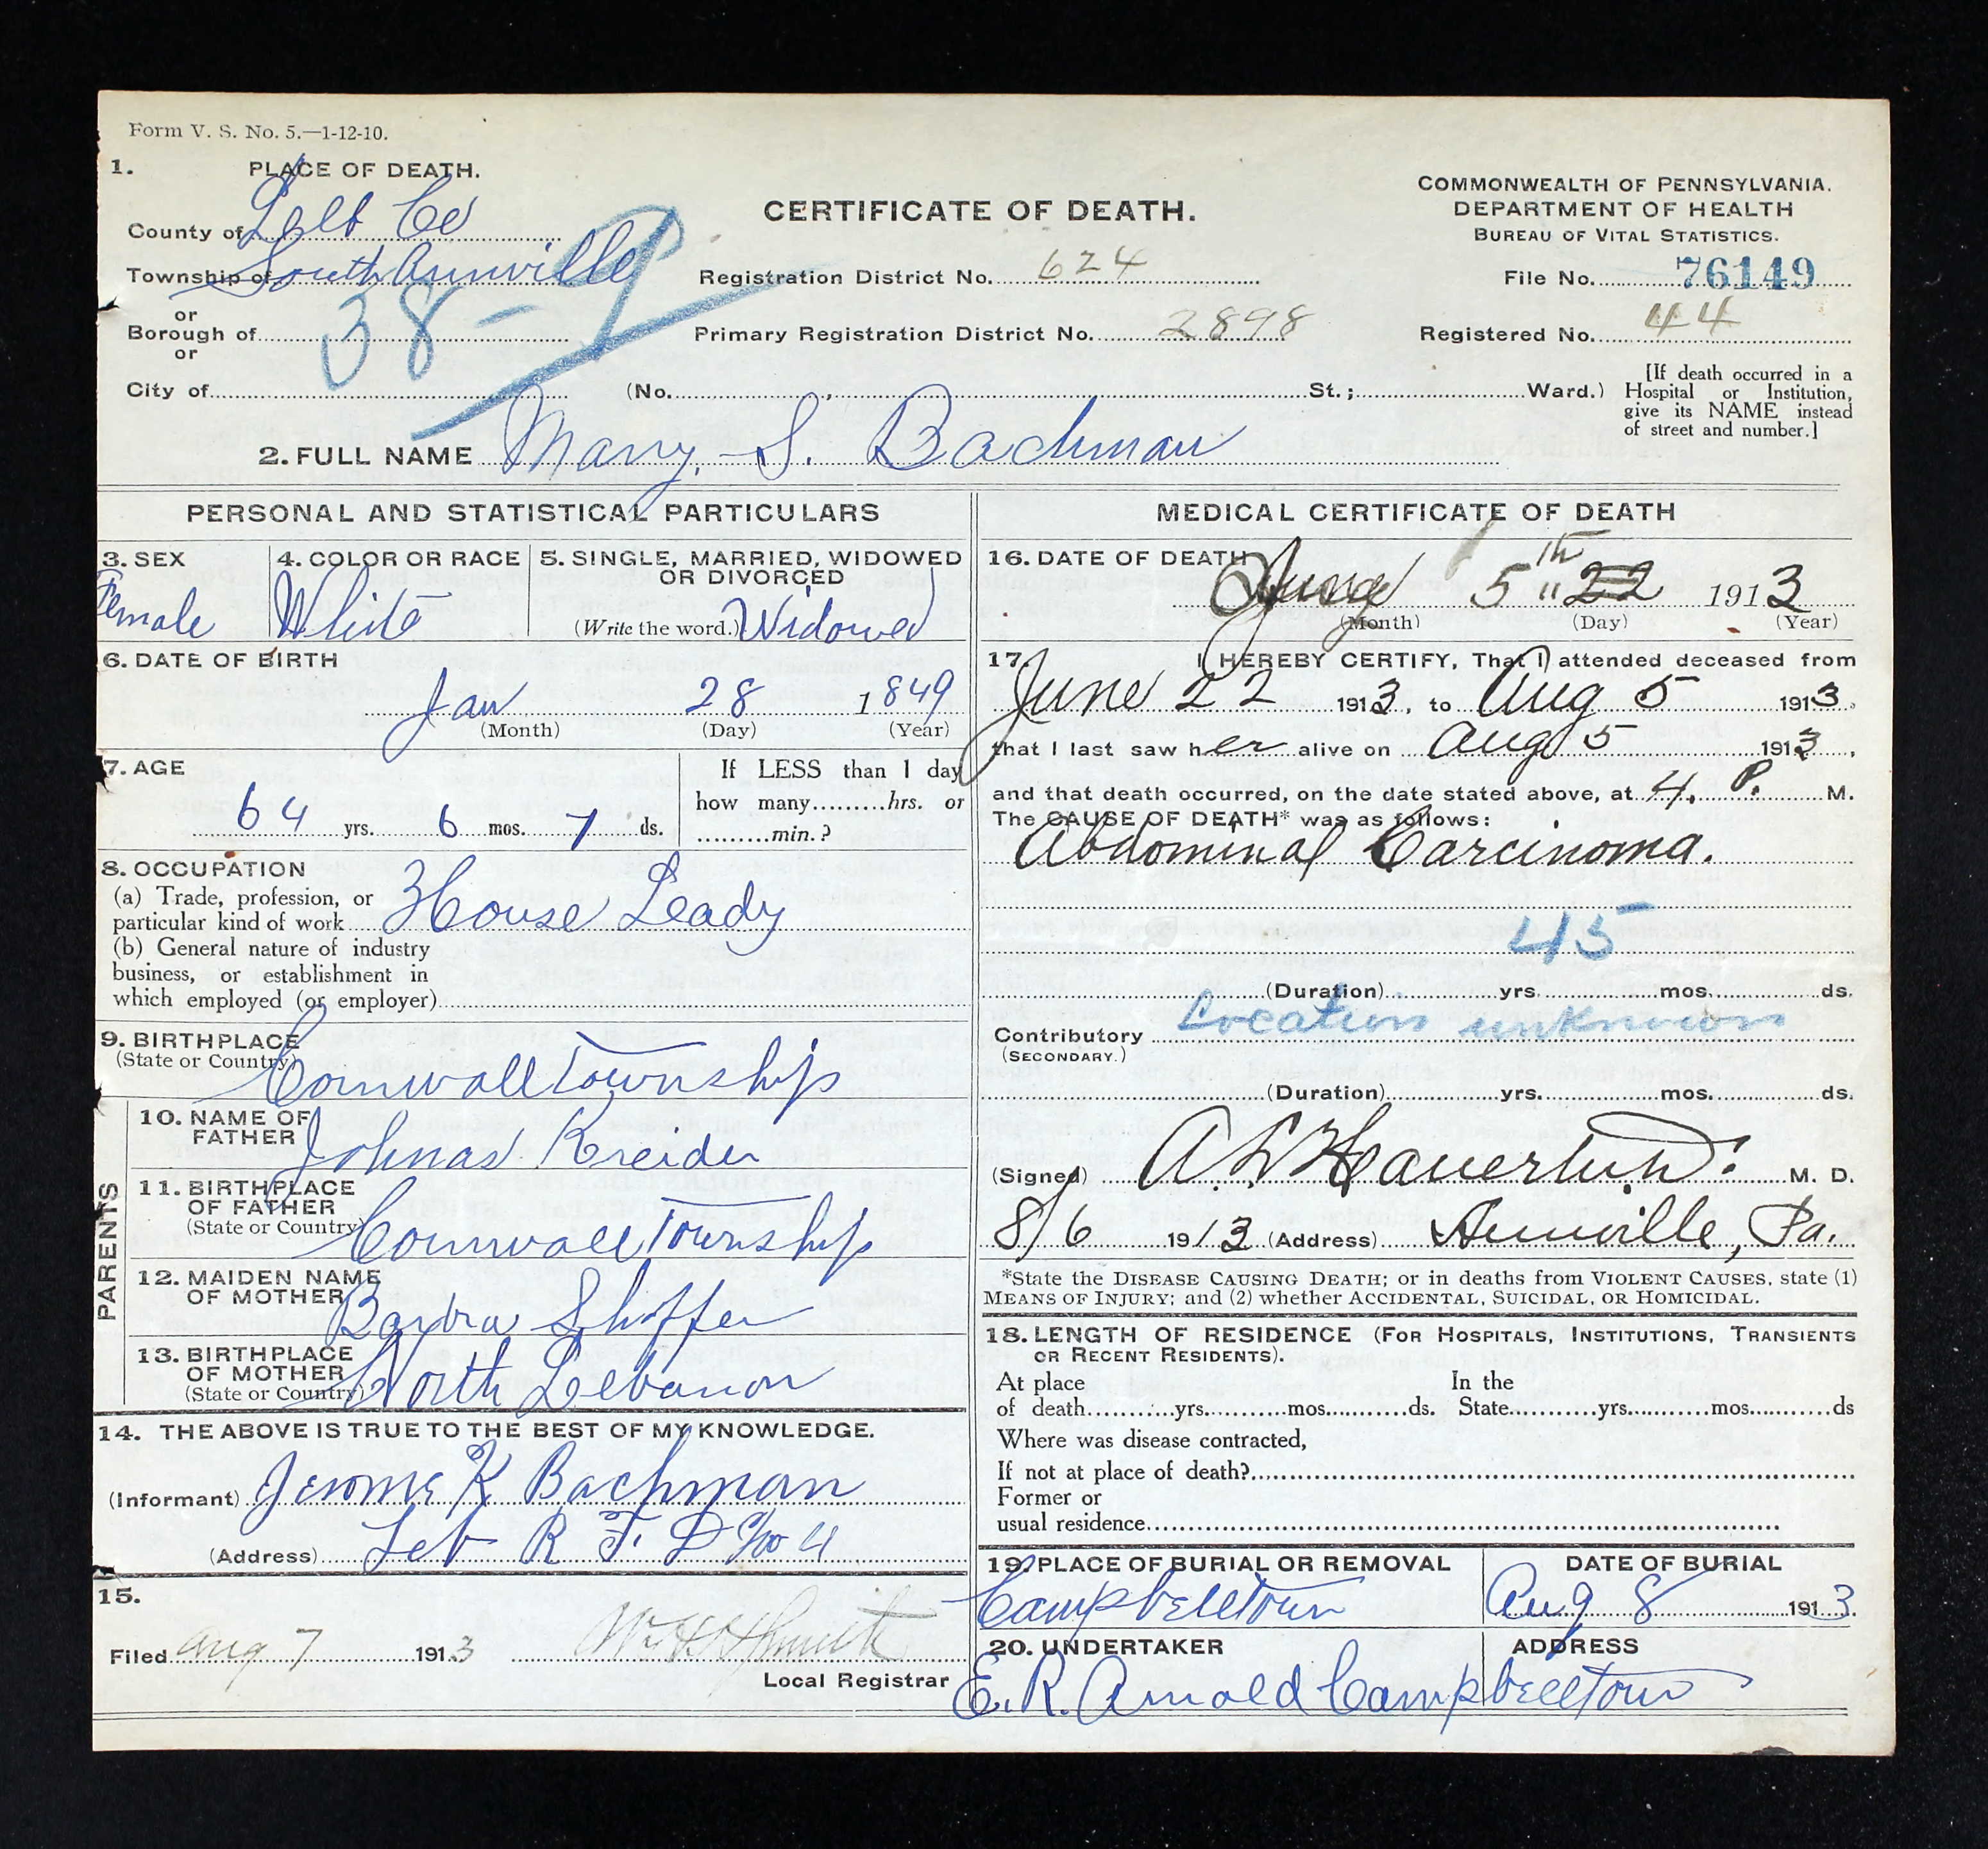 Form V. S. No. 5.—1-12-10.
1. PLACE OF DEATH.
County of Leb Co
Township of South Annville
or
Borough of
or
City of
38-9
CERTIFICATE OF DEATH.
Registration District No. 624
Primary Registration District No. 2898
(No. , St.; Ward.)
COMMONWEALTH OF PENNSYLVANIA.
DEPARTMENT OF HEALTH
BUREAU OF VITAL STATISTICS.
File No. 76149
Registered No. 44
[If death occurred in a
Hospital or Institution,
give its NAME instead
of street and number.]
2. FULL NAME Mary, S. Bachman
PERSONAL AND STATISTICAL PARTICULARS
3. SEX
Female
4. COLOR OR RACE
White
5. SINGLE, MARRIED, WIDOWED
OR DIVORCED
(Write the word.) Widowed
6. DATE OF BIRTH
Jan 28 1849
(Month) (Day) (Year)
7. AGE
64 yrs. 6 mos. 7 ds.
If LESS than 1 day
how many hrs. or
min.?
8. OCCUPATION
(a) Trade, profession, or
particular kind of work House Leady
(b) General nature of industry
business, or establishment in
which employed (or employer)
9. BIRTHPLACE
(State or Country)
Cornwall Township
PARENTS
10. NAME OF
FATHER
Johnas Kreider
11. BIRTHPLACE
OF FATHER
(State or Country)
Cornwall Township
12. MAIDEN NAME
OF MOTHER
Barbra Shoffer
13. BIRTHPLACE
OF MOTHER
(State or Country)
North Lebanon
14. THE ABOVE IS TRUE TO THE BEST OF MY KNOWLEDGE.
(Informant) Jerome K Bachman
(Address) Leb R F. D No 4
15.
Filed Aug 7 1913
Local Registrar
MEDICAL CERTIFICATE OF DEATH
16. DATE OF DEATH
5th 22 1913
(Month) (Day) (Year)
17. I HEREBY CERTIFY, That I attended deceased from
June 22 1913, to Aug 5 1913.
that I last saw her alive on Aug 5 1913,
and that death occurred, on the date stated above, at 4. P. M.
The CAUSE OF DEATH* was as follows:
Abdominal Carcinoma.
45
(Duration) yrs. mos. ds.
Contributory Location unknown
(SECONDARY.)
(Duration) yrs. mos. ds.
(Signed) M. D.
8/6 1913 (Address) Annville, Pa.
*State the DISEASE CAUSING DEATH; or in deaths from VIOLENT CAUSES, state (1)
MEANS OF INJURY; and (2) whether ACCIDENTAL, SUICIDAL, OR HOMICIDAL.
18. LENGTH OF RESIDENCE (FOR HOSPITALS, INSTITUTIONS, TRANSIENTS
OR RECENT RESIDENTS).
At place In the
of death yrs. mos. ds. State yrs. mos. ds
Where was disease contracted,
If not at place of death?
Former or
usual residence
19. PLACE OF BURIAL OR REMOVAL
Campbelltown
DATE OF BURIAL
Aug 8 1913.
20. UNDERTAKER ADDRESS
E. R. Arnold Campbelltown